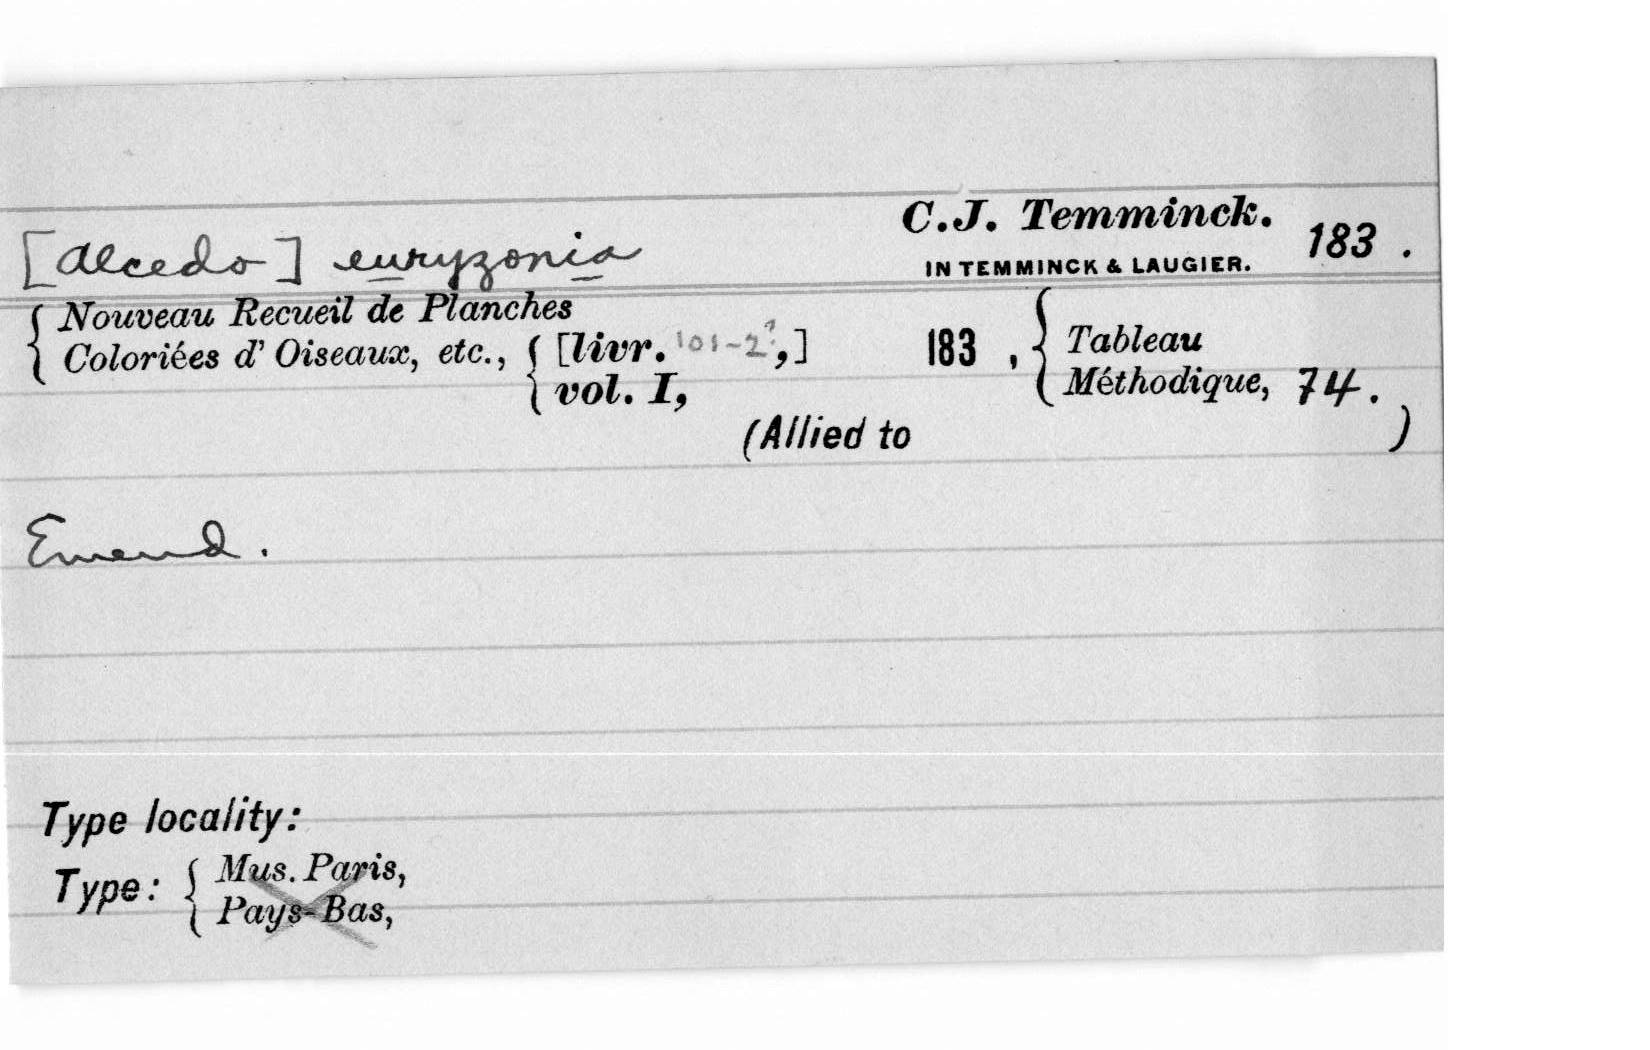 C.J. Temminck.
[Alcedo] euryzonia 183 .
IN TEMMINCK & LAUGIER.
{ Nouveau Recueil de Planches
Coloriées d' Oiseaux, etc., { [livr. 101-2?,] 183 , { Tableau
vol. I, Méthodique, 74.
(Allied to )
Emend.
Type locality:
Type: { Mus. Paris,
Pays-Bas,